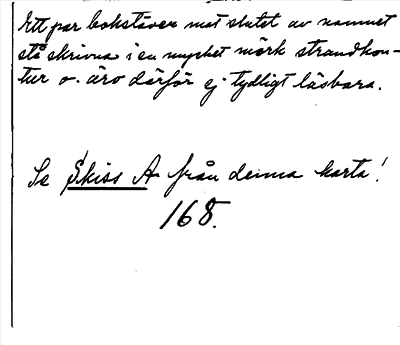 Ett par bokstäver mot slutet av namnet
stå skrivna i en mycket mörk strandkon-
tur o. äro därför ej tydligt läsbara.
Se Skiss A från denna karta!
168.